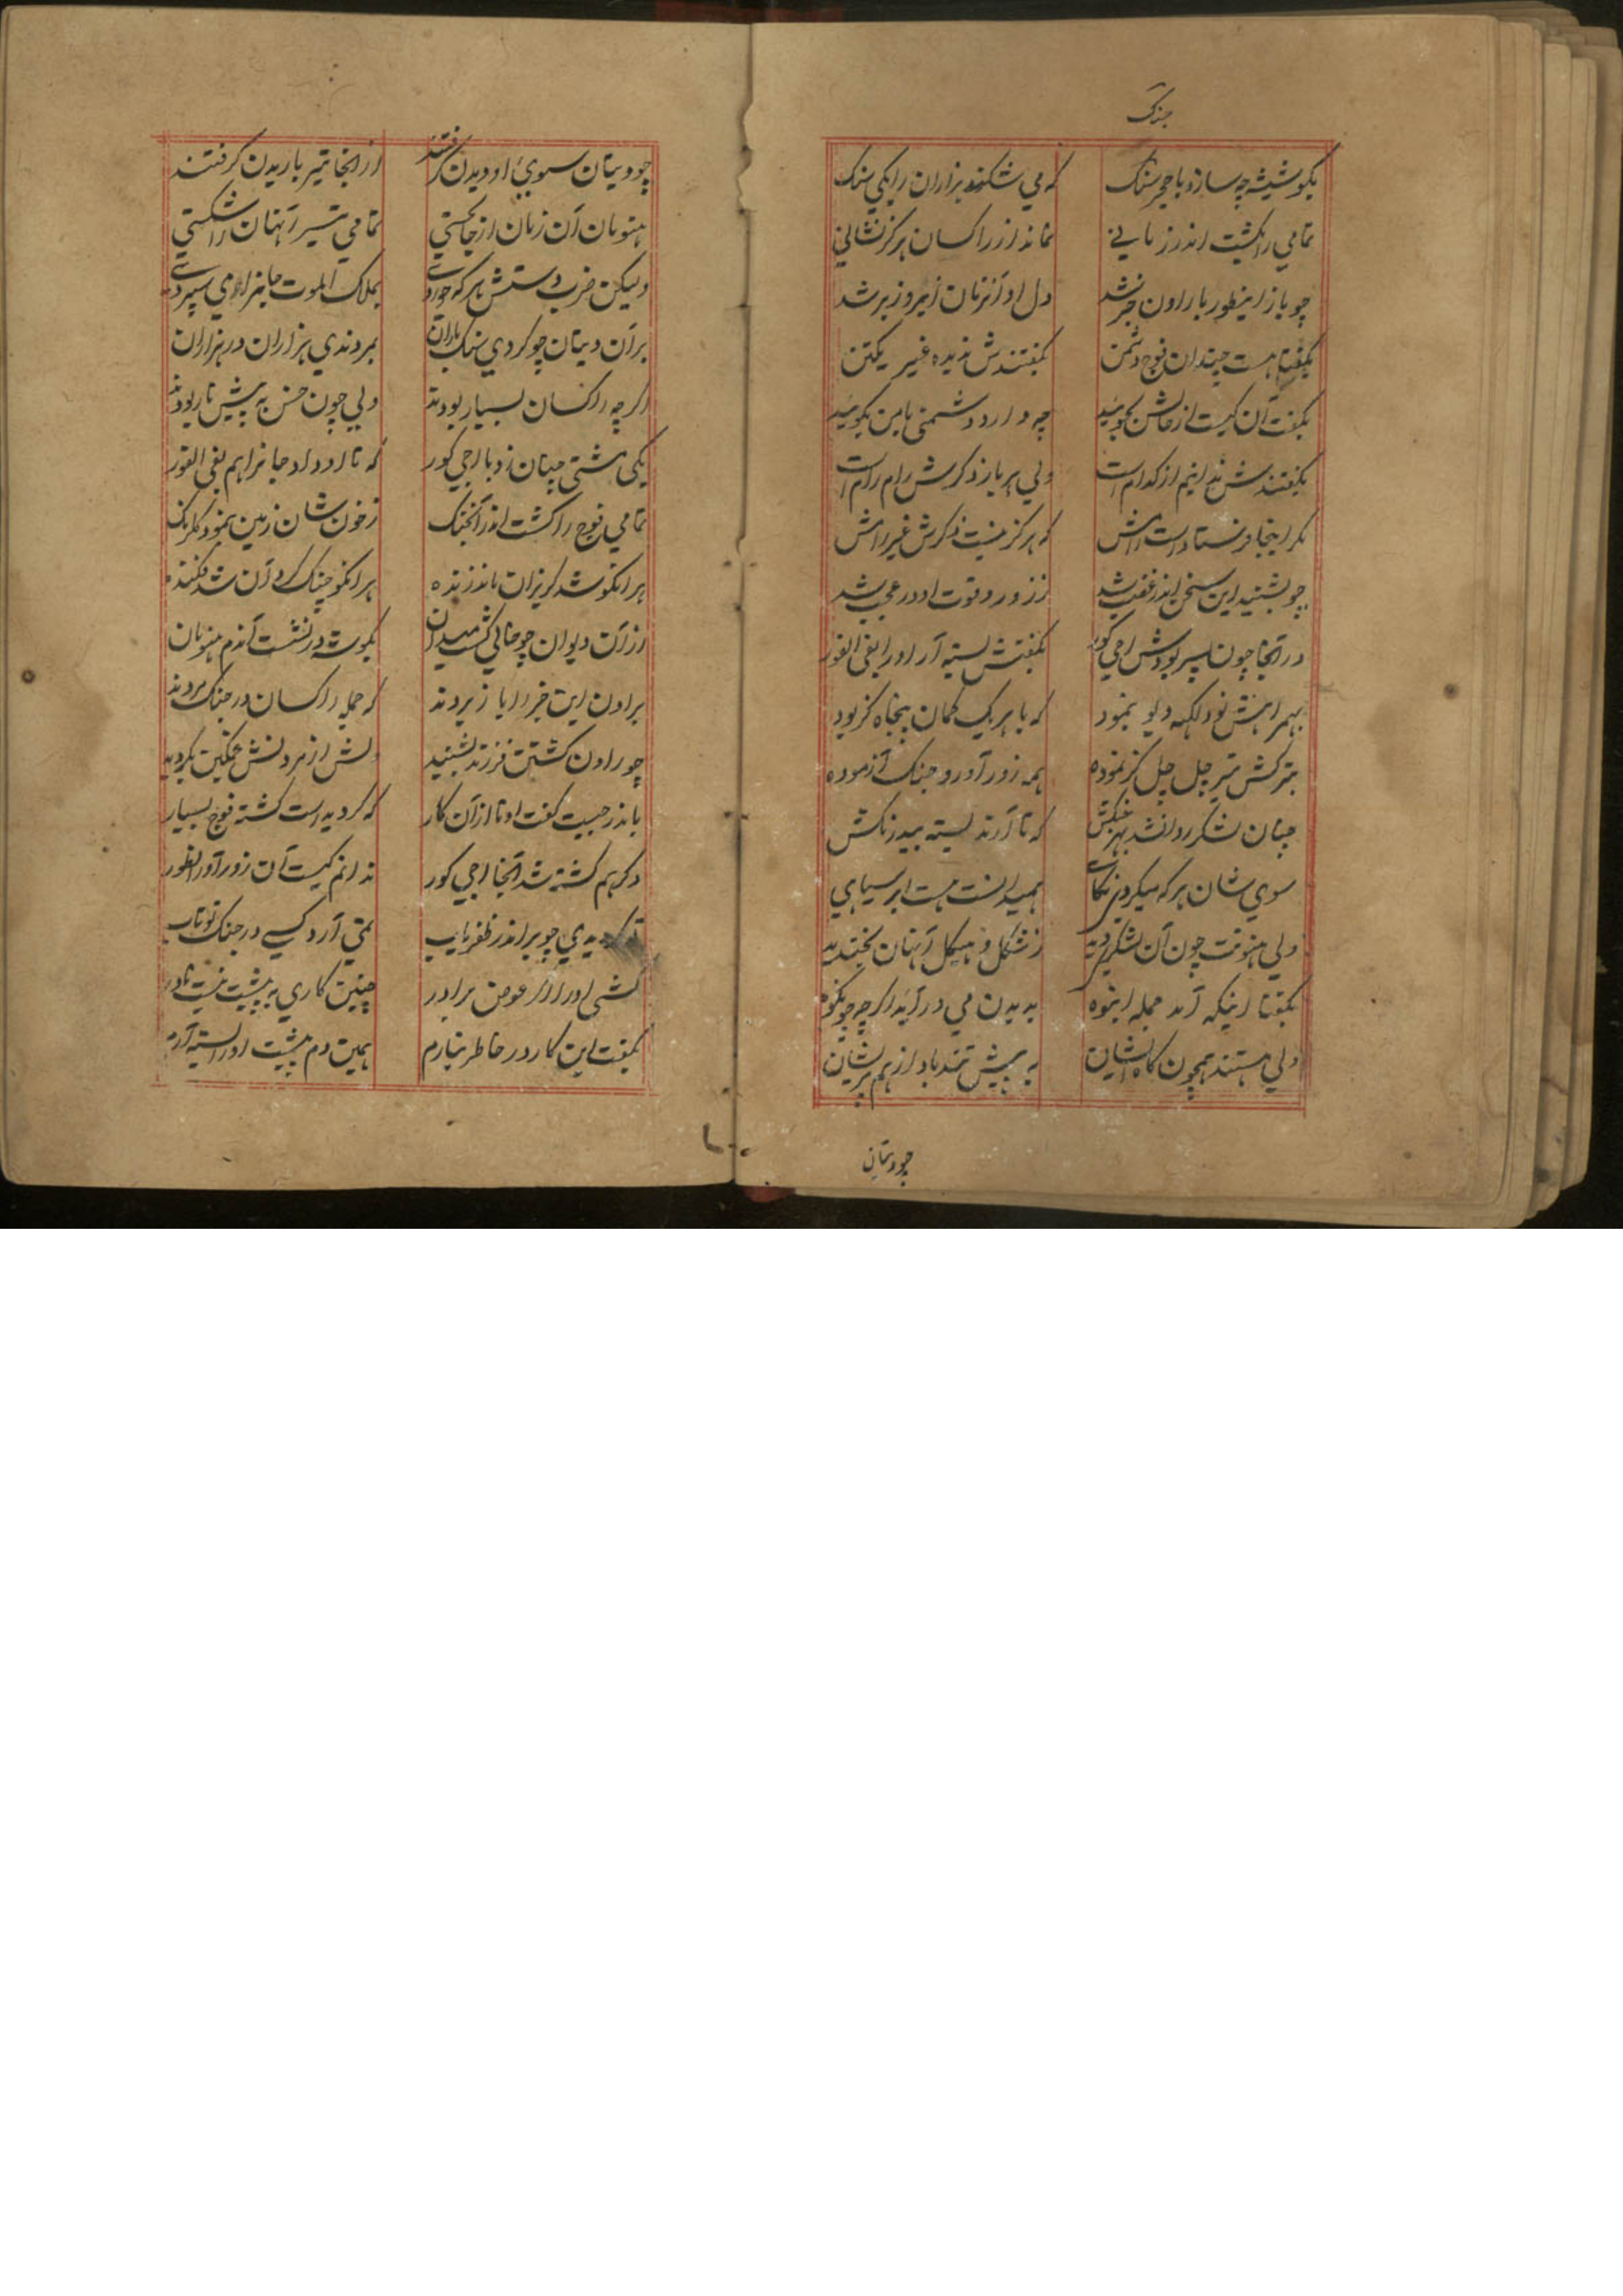 جنگ
بکو شیشه چه سازد با حجر سنک که می شکند هزاران را یکی سنک
تمامی را بکشت اندر زمانی نماند از راکسان هرکز نشانی
چو باز اینطور با راون خبر شد دل او آنزمان زیر و زبر شد
بکفتا هست چندان فوج دشمن بکفتندش ندیده غیر یکتن
بکفت آن کیست از حالش بکویید چه دارد دشمنی با من بکویید
بکفتندش ندانیم از کدام است ولی هر بار ذکرش رام رام است
مکر اینجا فرستاد است رامش که هرکز نیست ذکرش غیر رامش
چو بشنید این سخن اندر غضب شد ز زور و قوت او در عجب شد
در آنجا چون پسر بودش اجی کور بکفتش بسته آر او را بفی الفور
بهمراهش نود لکهه دیو نمود که با هر یک کمان پنجاه کز بود
بترکش تیر چل چل کز نموده همه زور آور و جنک آزموده
چنان لشکر روانشد بهر جنکش که تا آرند بسته بیدرنکش
سوی شان هر که میکردی نکاهی همیدانست هست ابر سیاهی
ولی هنونت چون آن لشکر دید ز شکل و هیکل آنهان بخندید
بکفتا اینکه آمد جمله انبوه به بدن می در آید ارچه چو کوه
ولی هستند همچون کاه ایشان به پیش تندباد از هم پریشان
چو دیتان
چو دیتان سوی او دیدن کرفتند از آنجا تیر باریدن کرفتند
هنومان آن زمان از جا بجستی تمامی تیر آنهان را شکستی
ولیکن ضرب دستش هر که خوردی بملاک الموت جانرا می سپردی
بر آن دیتان چو کردی سنک باران بمردندی هزاران در هزاران
اکر چه راکسان بسیار بودند ولی چون خس به پیش نار بودند
یکی مشتی چنان زد با اجی کور که تا او داد جانرا هم بفی الفور
تمامی فوج را کشت اندر آنجنک ز خون شان زمین بنمود کلرنک
هر آنکو شد کریزان ماند زنده هر آنکو جنک کرد آن شد فکنده
از آن دیوان چو خالی کشت میدان بکوشه در نشست آندم هنومان
براون این خبر را باز بردند که جمله راکسان در جنک مردند
چو راون کشتن فرزند بشنید دلش از مردنش غمکین بکردید
باندرجیت کفت او تا از آن کار که کردیده است کشته فوج بسیار
دکر هم کشته شد آنجا اجی کور ندانم کیست آن زور آور انطور
تو کردیدی چو بر اندر ظفریاب نمی آرد کسی در جنک تو تاب
کشی او را اکر عوض برادر چنین کاری به پیشت نیست نادر
بکفت این کار در خاطر بیارم همین دم پیشت او را بسته آرم